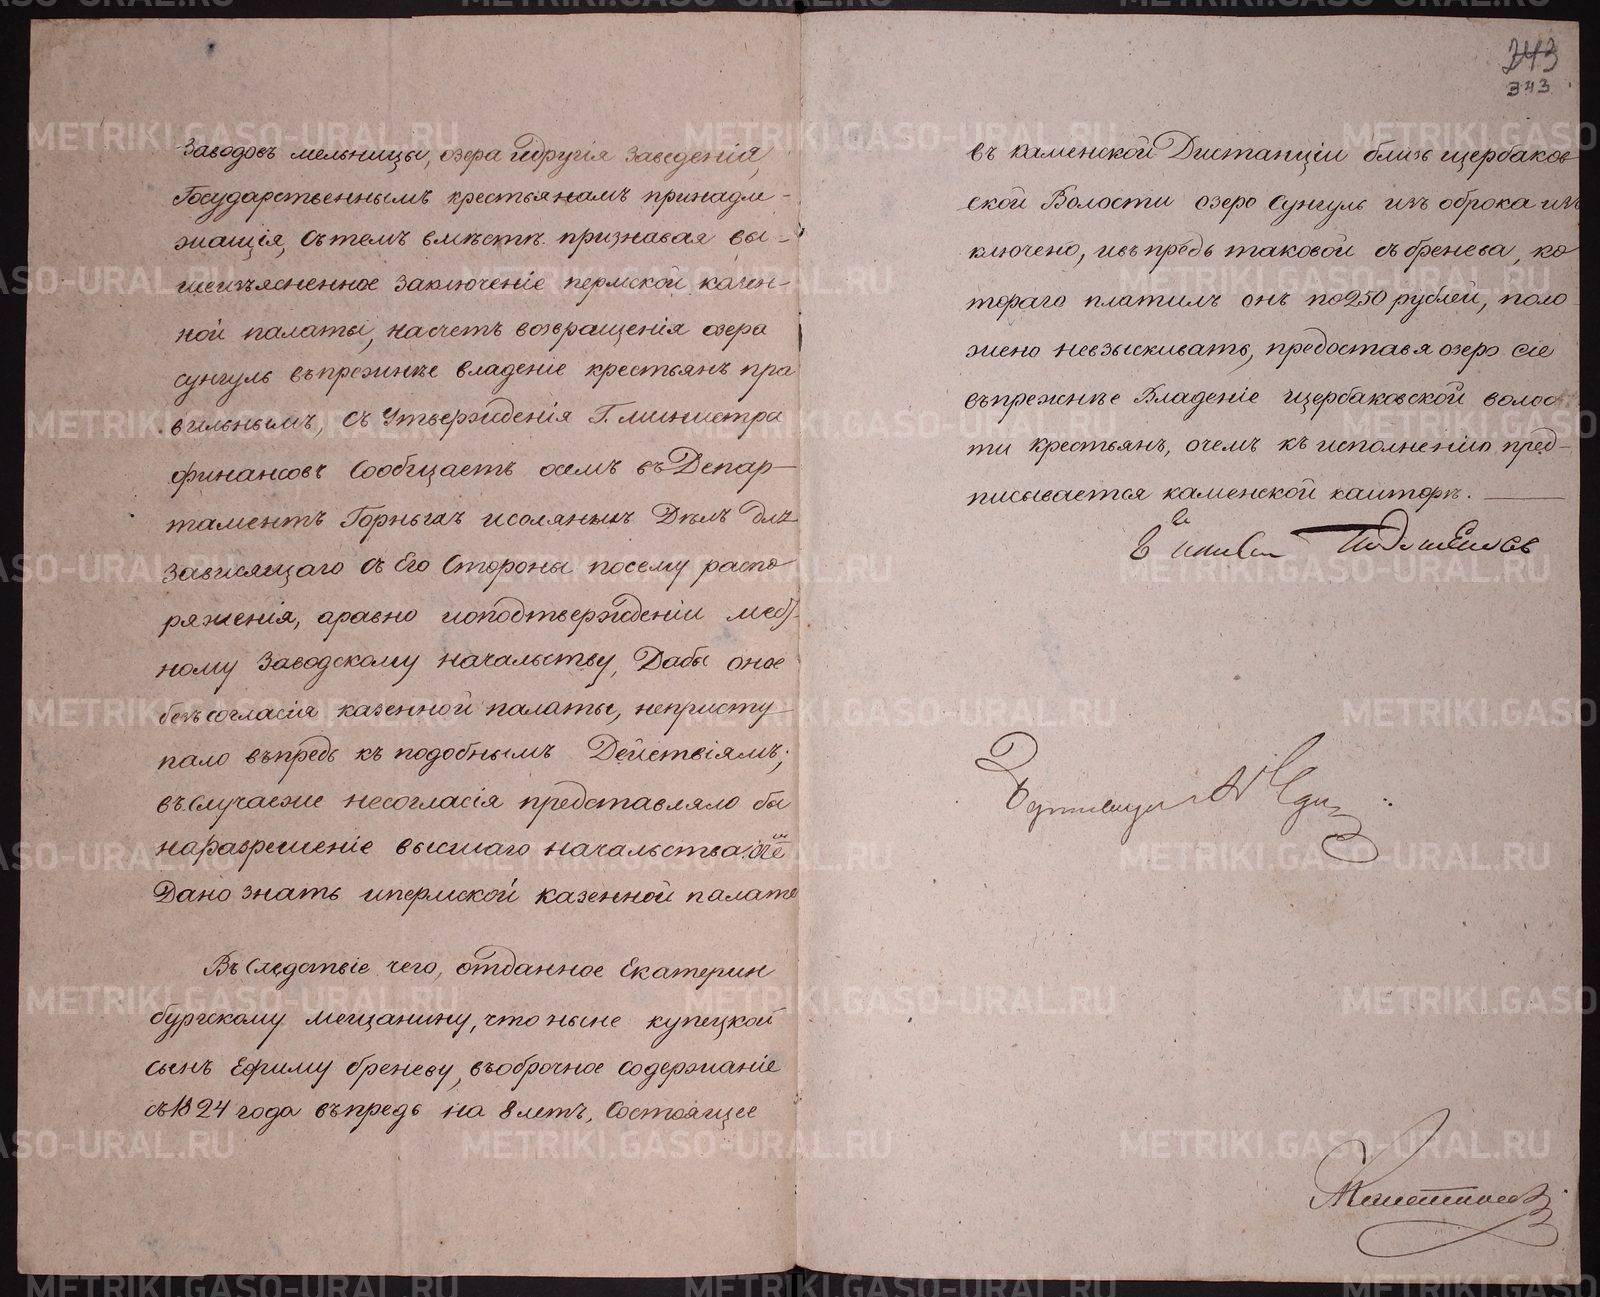 заводовъ мельницы, озера и другія заведенія,
Государственнымъ крестьянамъ принадле-
жащія, съ темъ вместе признавая вы-
шеизъясненное заключеніе пермской казен-
ной палаты, насчетъ возвращенія озера
сунгуль въпрежнѣе владеніе крестьянъ пра
вильнымъ, съ Утвержденія Г. министра
финансовъ Сообщаетъ осемъ въ Депар-
таментъ Горныхъ исоляныхъ Дѣлъ для
зависящаго съ Его Стороны посему распо
ряженія, аравно иоподтвержденіи мест-
ному Заводскому начальству, Дабы оное
безъ согласія казенной палаты, непристу-
пало въпредь къ подобнымъ Действіямъ;
въ Случаеже несогласія представляло бы
наразрешеніе высшаго начальства
Дано знать ипермской казенной палате
Въ Следствіе чего, отданное Екатерин
бургскому мещанину, что ныне купецкой
сынъ Ефиму бреневу, въоброчное содержаніе
съ 1824 года въпредь на 8 летъ, Состоящее
343
343
въ каменской Дистанціи близъ щербаков
ской Волости озеро Сунгуль изъ оброка из
ключено, ивъпредь таковой съ бренева, ко
тораго платилъ онъ по 250 рублей, поло
жено невзыскивать, предоставя озеро сіе
въпрежнѣе Владеніе щербаковской волос
ти крестьянъ, очемъ къ исполненію пред-
писывается каменской канторѣ.
METRIKI.GASO-URAL.RU